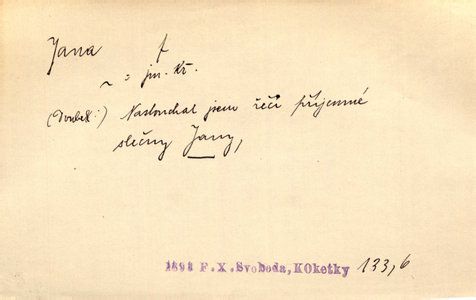 Jana f
~ = jm. kř.
(Doubek:) Naslouchal jsem řeči příjemné
slečny Jany,
1898 F.X.Svoboda, KOketky 133,6